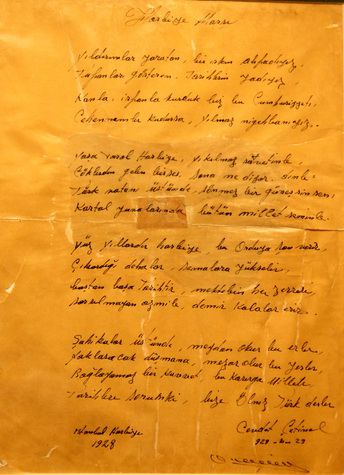 Harbiye Marşı
Yıldırımlar yaratan, bir ırkın ahfadıyız,
Tufanları gösteren, tarihlerin yadıyız,
Kanla, irfanla kurduk biz bu Cumhuriyeti,
Cehennemler kudursa, ölmez nigehbanıyız.
Yaşa varol Harbiye, yıkılmaz satvetinle,
Göklerden gelen bir ses, sana ne diyor dinle
Türk vatanı üstünde, sönmez bir güneşsin sen,
Kartal yuvalarında, bütün millet seninle.
Yüz yıllardır harbiye, bu Orduya şan verir,
Çıkardığı dehalar, semalara yükselir,
baştan başa tarihtir, mektebin her zerresi,
sarsılmayan azmile, demir kalalar erir.
Şahikalar üstünde, meydan okur bu erler,
Yaklaşacak düşmana, mezar olur bu yerler,
Bağlayamaz bir kuvvet, bu kasırga Milleti
Tarihlere sorunki, bize Ölmez Türk derler
İstanbul Harbiye
1928
Cemdet
928
29